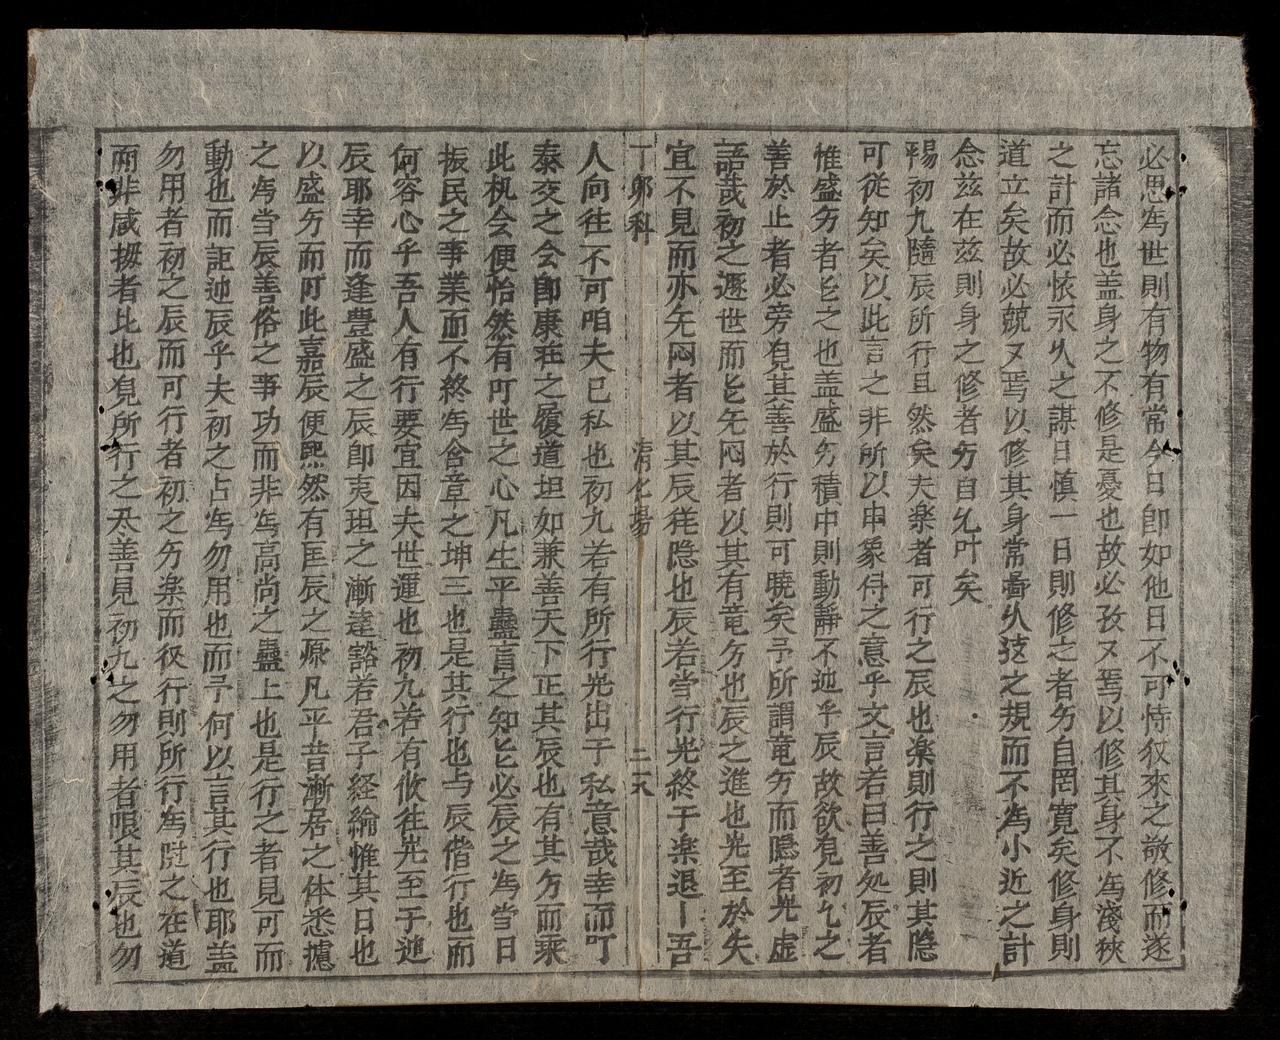 必思為世則有物有常今日即如他日不可恃㐲來之敬修而遂
忘諸念也盖身之不修是憂也故必孜又焉以修其身不為淺狹
之計而必怀永久之謀日慎一日則修之者方自罔寬矣修身則
道立矣故必兢又焉以修其身常啚久逺之規而不為小近之計
念兹在兹則身之修者方自允叶矣
暘初九隨辰所行且然矣夫楽者可行之辰也楽則行之則其隐
可從知矣以此言之非所以申象传之意乎文言若曰善処辰者
惟盛方者能之也盖盛方積中則動靜不迪乎辰故欲見初九之
善於止者必旁見其善於行則可曉矣予所謂竜方而隱者尭虚
語哉初之遯世而能无闷者以其有竜方也辰之進也尭至於失
宜不見而亦无闷者以其辰徃隐也辰若当行尭終于楽退丨吾
丁卯科 清化塲 二十八
人向往不可咱夫已私也初九若有所行尭出于私意哉幸而叮
泰交之会即康莊之履道坦如兼善天下正其辰也有其方而乘
此机会便怡然有叮世之心凡生平蠱言之知能必辰之為当日
振民之事業而不終為含章之坤三也是其行也与辰偕行也而
何容心乎吾人有行要宜因夫世運也初九若有攸往尭至于迪
辰耶幸而逢豊盛之辰即夷坦之漸達豁若君子経綸惟其日也
以盛方而叮此嘉辰便熙然有匡辰之愿凡平昔漸居之体悉攄
之為当辰善俗之事功而非為高尚之蠱上也是行之者見可而
動也而詎迪辰乎夫初之占為勿用也而予何以言其行也耶盖
勿用者初之辰而可行者初之方楽而後行則所行為隨之在道
而非咸拇者比也見所行之尽善見初九之勿用者限其辰也勿